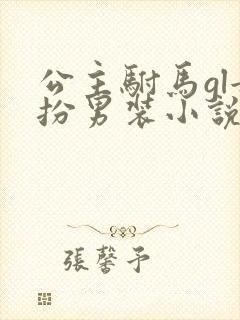 公主駙馬gl
扮男裝小說
張馨予